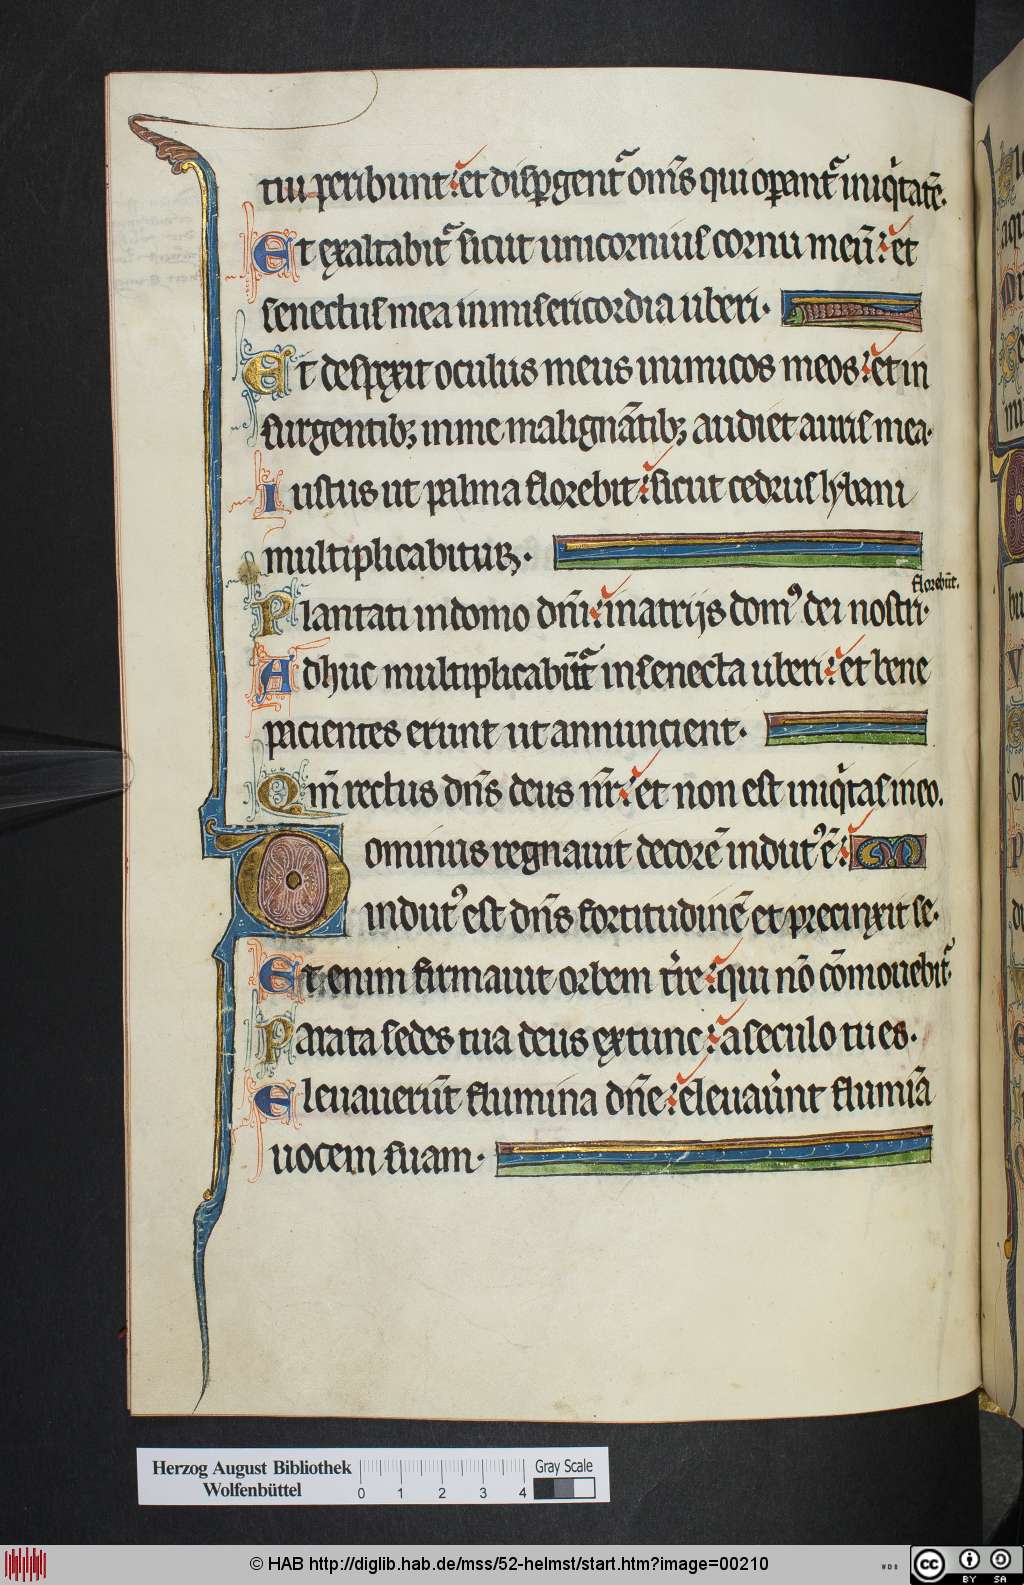 tui peribunt: et disp̄gent᷑ om̄s qui op̄ant᷑ iniq̇tatē.
Et exaltabit᷑ sicut unicornius cornu meū: et
senectus mea in misericordia uberi.
Et despexit oculus meus inimicos meos: et in
surgentib; in me malignātib; audiet auris mea.
Iustus ut palma florebit: sicut cedrus lybani
multiplicabitur.
florebūt.
Plantati in domo dn̄i: in atrijs domꝰ dei nostri.
Adhuc multiplicabūt᷑ in senecta uberi: et bene
pacientes erunt ut annuncient.
Qm̄ rectus dn̄s deus nr̄: et non est iniq̇tas in eo.
Dominus regnauit decorē indutꝰ ē:
indutꝰ est dn̄s fortitudinē et precinxit se.
Et enim firmauit orbem t̄re: qui nō cōmouebit᷑.
Parata sedes tua deus ex tunc: a seculo tu es.
Eleuauerūt flumina dn̄e: eleuaūnt flumīa
uocem suam.
Herzog August Bibliothek
Wolfenbüttel
0 1 2 3 4
Gray Scale
© HAB http://diglib.hab.de/mss/52-helmst/start.htm?image=00210
WDB
cc BY SA